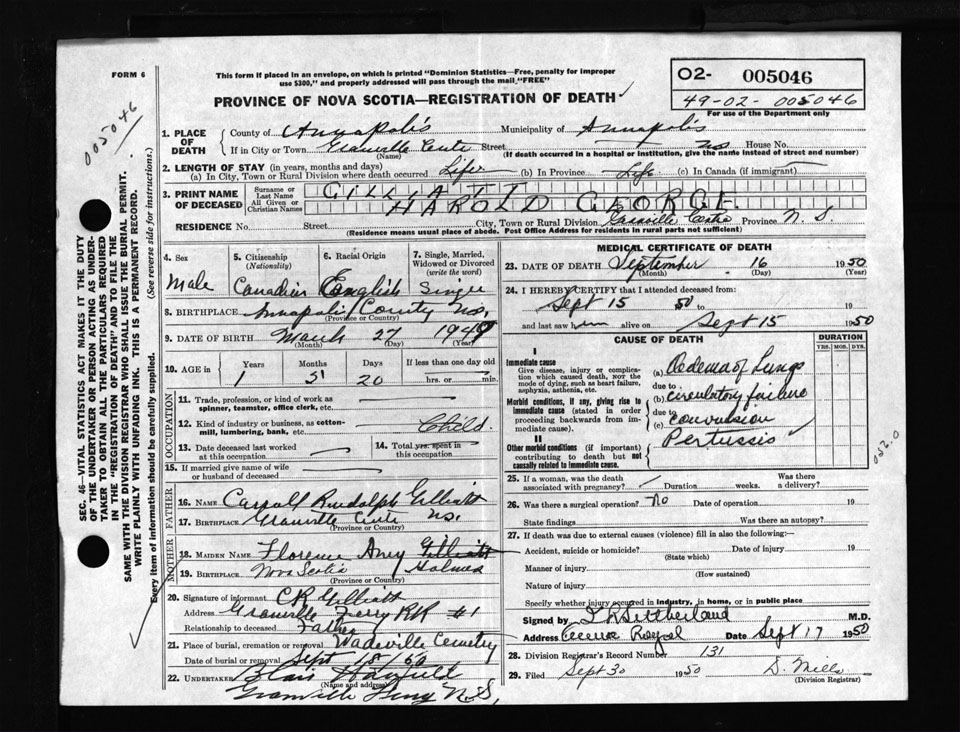 FORM 6
This form if placed in an envelope, on which is printed "Dominion Statistics—Free, penalty for improper
use $300," and properly addressed will pass through the mail "FREE"
O2- 005046
49-02-005046
For use of the Department only
005046
PROVINCE OF NOVA SCOTIA—REGISTRATION OF DEATH
1. PLACE OF DEATH
County of Annapolis Municipality of Annapolis
If in City or Town Granville Centre Street no House No.
(Name) (If death occurred in a hospital or institution, give the name instead of street and number)
2. LENGTH OF STAY (in years, months and days)
(a) In City, Town or Rural Division where death occurred Life (b) In Province Life (c) In Canada (if immigrant)
3. PRINT NAME OF DECEASED
Surname or Last Name GILLIATT
All Given or Christian Names HAROLD GEORGE
RESIDENCE No. Street City, Town or Rural Division Granville Centre Province N.S.
(Residence means usual place of abode. Post Office Address for residents in rural parts not sufficient)
SEC. 46—VITAL STATISTICS ACT MAKES IT THE DUTY
OF THE UNDERTAKER OR PERSON ACTING AS UNDER-
TAKER TO OBTAIN ALL THE PARTICULARS REQUIRED
IN THE "REGISTRATION OF DEATH" AND TO FILE THE
SAME WITH THE DIVISION REGISTRAR WHO SHALL ISSUE THE BURIAL PERMIT.
WRITE PLAINLY WITH UNFADING INK. THIS IS A PERMANENT RECORD.
Every item of information should be carefully supplied. (See reverse side for instructions.)
4. Sex
Male
5. Citizenship
(Nationality)
Canadian
6. Racial Origin
English
7. Single, Married,
Widowed or Divorced
(write the word)
Single
8. BIRTHPLACE Annapolis County N.S.
(Province or Country)
9. DATE OF BIRTH March 27 1949
(Month) (Day) (Year)
10. AGE in
Years Months Days If less than one day old
1 5 20 hrs. or min.
OCCUPATION
11. Trade, profession or kind of work as
spinner, teamster, office clerk, etc.
12. Kind of industry or business, as cotton-
mill, lumbering, bank, etc. Child.
13. Date deceased last worked
at this occupation
14. Total yrs. spent in
this occupation
15. If married give name of wife
or husband of deceased
FATHER
16. NAME Carroll Rudolph Gilliatt
17. BIRTHPLACE Granville Centre N.S.
(Province or Country)
MOTHER
18. MAIDEN NAME Florence Amy Gilliatt
Holmes
19. BIRTHPLACE Nova Scotia
(Province or Country)
20. Signature of informant CR Gilliatt
Address Granville Ferry RR #1
Relationship to deceased Father
21. Place of burial, cremation or removal Wadeville Cemetry
Date of burial or removal Sept 18/50
22. UNDERTAKER Blair
(Name and address)
Granville Ferry N.S.
MEDICAL CERTIFICATE OF DEATH
23. DATE OF DEATH September 16 1950
(Month) (Day) (Year)
24. I HEREBY CERTIFY that I attended deceased from:
Sept 15 50 to 19
and last saw him alive on Sept 15 1950
CAUSE OF DEATH
DURATION
YRS. MOS. DYS.
I
Immediate cause
Give disease, injury or complica-
tion which caused death, NOT the
mode of dying, such as heart failure,
asphyxia, asthenia, etc.
(a) Oedema of Lungs
due to
Morbid conditions, if any, giving rise to
immediate cause (stated in order
proceeding backwards from im-
mediate cause).
(b) circulatory failure
due to
(c) convulsion
II
Other morbid conditions (if important)
contributing to death but not
causally related to immediate cause.
Pertussis
052.0
25. If a woman, was the death
associated with pregnancy? Duration weeks. Was there
a delivery?
26. Was there a surgical operation? no Date of operation 19
State findings Was there an autopsy?
27. If death was due to external causes (violence) fill in also the following:
Accident, suicide or homicide? Date of injury 19
(State which)
Manner of injury
(How sustained)
Nature of injury
Specify whether injury occurred in industry, in home, or in public place
Signed by Sutherland M.D.
Address Date Sept 17 1950
28. Division Registrar's Record Number 131
29. Filed Sept 30 1950 D. Mills
(Division Registrar)